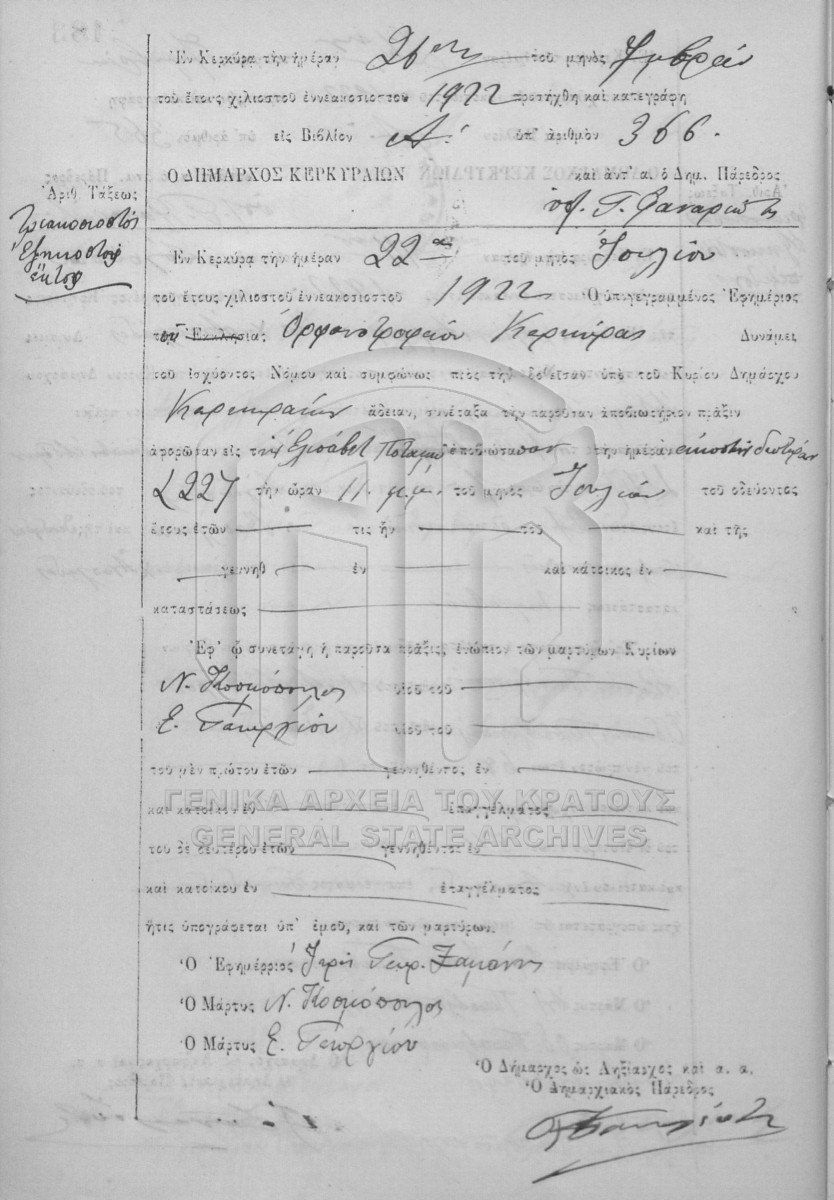 Ἐν Κερκύρᾳ τὴν ἡμέραν 26ην τοῦ μηνὸς
τοῦ ἔτους χιλιοστοῦ ἐννεακοσιοστοῦ 1922 προσήχθη καὶ κατεγράφη
εἰς Βιβλίον Α' ὑπ' ἀριθμὸν 366.
Ο ΔΗΜΑΡΧΟΣ ΚΕΡΚΥΡΑΙΩΝ καὶ ἀντ' α. ὁ Δημ. Πάρεδρος
Ἀριθ Τάξεως
Τριακοσιοστός
ἑξηκοστός
ἕκτος
Ἐν Κερκύρᾳ τὴν ἡμέραν 22αν τοῦ μηνὸς Ἰουλίου
τοῦ ἔτους χιλιοστοῦ ἐννεακοσιοστοῦ 1922 Ὁ ὑπογεγραμμένος Ἐφημέριος
Ἐκκλησίας Ὀρφανοτροφείου Κερκύρας Δυνάμει
τοῦ ἰσχύοντος Νόμου καὶ συμφώνως πρὸς τὴν δοθεῖσαν ὑπὸ τοῦ Κυρίου Δημάρχου
Κερκυραίων ἄδειαν, συνέταξα τὴν παροῦσαν ἀποβιωτήριον πρᾶξιν
ἀφορῶσαν εἰς τὴν Ἐλισάβετ ἀποβιώσασαν τὴν ἡμέραν εἰκοστὴν δευτέραν
<22> τὴν ὥραν 11 τοῦ μηνὸς Ἰουλίου τοῦ ὁδεύοντος
ἔτους ἐτῶν τις ἦν τοῦ καὶ τῆς
γεννηθ ἐν καὶ κάτοικος ἐν
καταστάσεως
Ἐφ' ᾧ συνετάγη ἡ παροῦσα πρᾶξις, ἐνώπιον τῶν μαρτύρων Κυρίων
Ν. Κοσμόπουλος υἱοῦ τοῦ
Ε. Γεωργίου υἱοῦ τοῦ
τοῦ μὲν πρώτου ἐτῶν γεννηθέντος ἐν
καὶ κατοίκου ἐν ἐπαγγέλματος
ΓΕΝΙΚΑ ΑΡΧΕΙΑ ΤΟΥ ΚΡΑΤΟΥΣ
GENERAL STATE ARCHIVES
τοῦ δὲ δευτέρου ἐτῶν γεννηθέντος ἐν
καὶ κατοίκου ἐν ἐπαγγέλματος
ἥτις ὑπογράφεται ὑπ' ἐμοῦ, καὶ τῶν μαρτύρων.
Ὁ Ἐφημέρριος Γεωρ.
Ὁ Μάρτυς Ν. Κοσμόπουλος
Ὁ Μάρτυς Ε. Γεωργίου
Ὁ Δήμαρχος ὡς Ληξίαρχος καὶ α. α.
Ὁ Δημαρχιακὸς Πάρεδρος